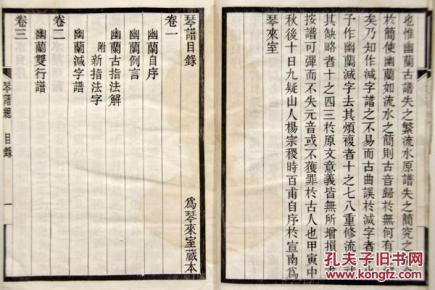 也惟幽蘭古譜失之繁流水原譜失之簡究之
於簡使幽蘭如流水之簡則古音歸於無何有
矣乃知作減字譜之不易而古曲誤於減字者
子作幽蘭減字去其煩複者十之七八重修流水
其缺略者十之四三於原文意義皆無所增損
按譜可彈而不失元音或不獲罪於古人也甲寅中
秋後十日九疑山人楊宗稷時百甫自序於宣南爲
琴來室
琴譜目錄
爲琴來室藏本
卷一
幽蘭自序
幽蘭例言
幽蘭古指法解
附
新指法字
卷二
幽蘭減字譜
卷三
幽蘭雙行譜
琴譜
目錄
一
孔夫子旧书网